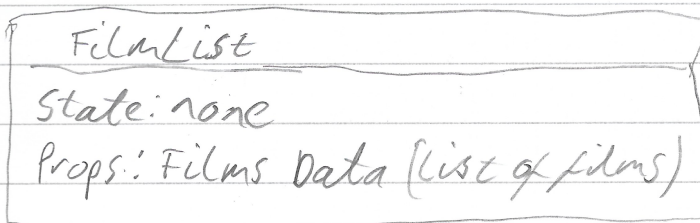 FilmList
State: none
Props: Films Data (list of films)